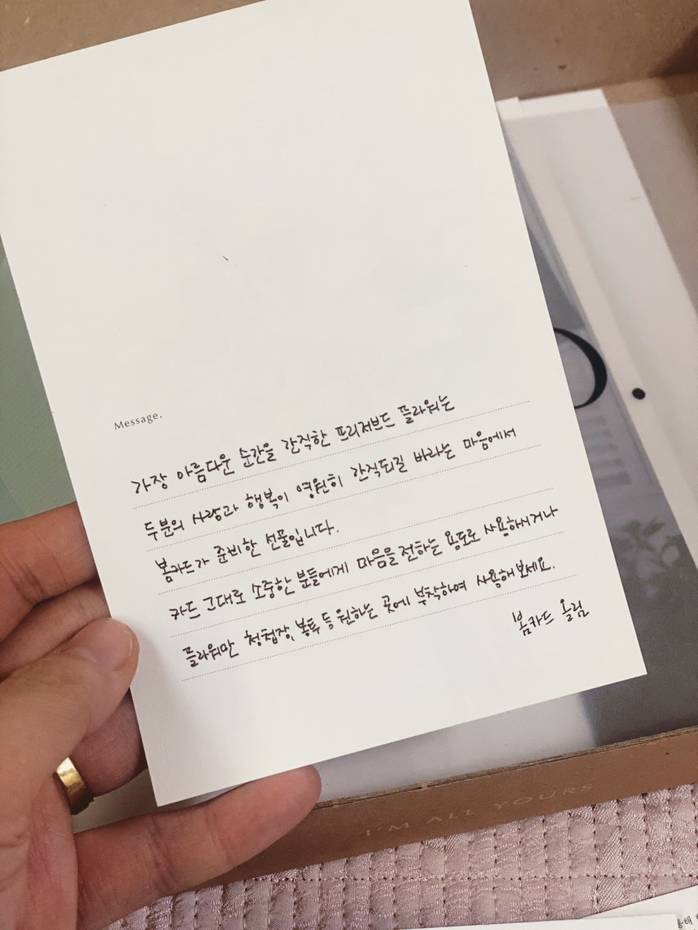 Message.
가장 아름다운 순간을 간직한 프리저브드 플라워는
두분의 사랑과 행복이 영원히 간직되길 바라는 마음에서
봄카드가 준비한 선물입니다.
카드 그대로 소중한 분들에게 마음을 전하는 용도로 사용하시거나
플라워만 청첩장, 봉투 등 원하는 곳에 부착하여 사용해보세요.
봄카드 올림
I'M ALL YOURS